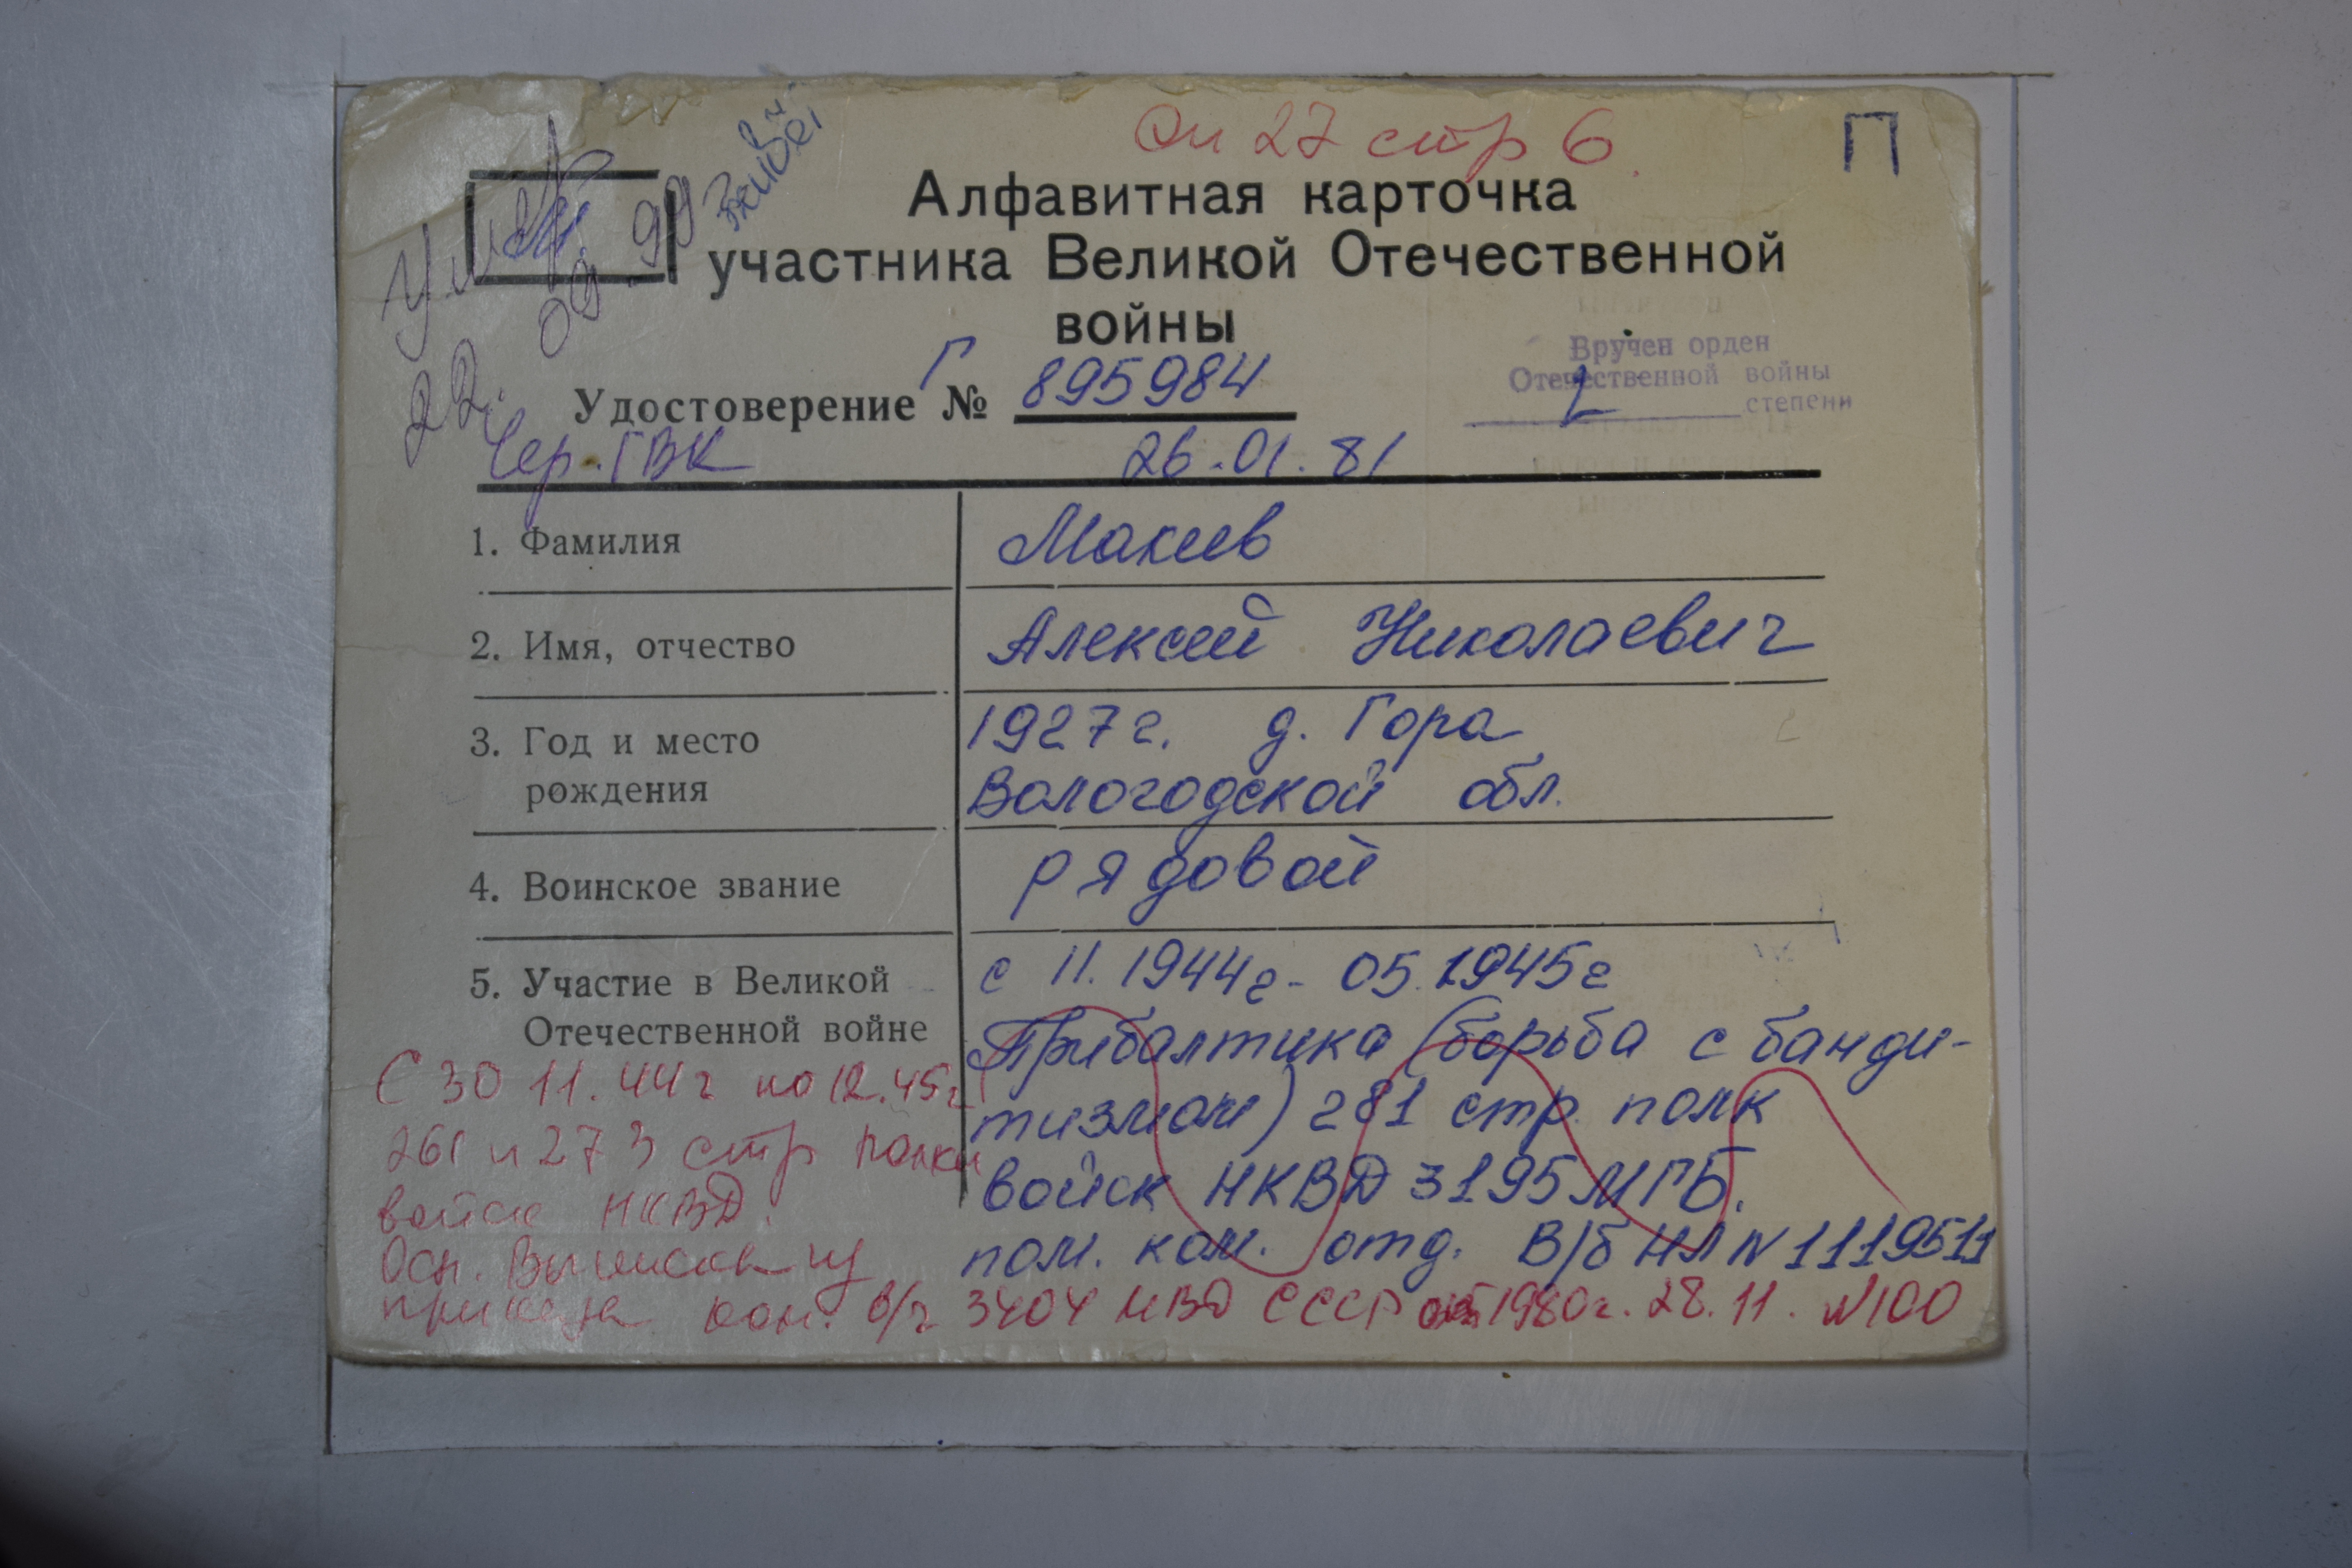 Оп 27 стр 6.
П
Алфавитная карточка
участника Великой Отечественной
войны
Умер
22.09.99
Удостоверение Г № 895984
Вручен орден
Отечественной войны
2 степени
Чер. ГВК 26.01.81
1. Фамилия Макеев
2. Имя, отчество Алексей Николаевич
3. Год и место 1927г. д. Гора
рождения Вологодской обл.
4. Воинское звание рядовой
5. Участие в Великой с 11.1944г - 05.1945г
Отечественной войне Прибалтика (борьба с банди-
тизмом) 281 стр. полк
войск НКВД 3195 МГБ.
пом. ком. отд. В/б НЛ N 1119511
С 30 11.44г по 12.45г
261 и 273 стр полки
войск НКВД.
Осн. Выписка из
приказа ком. в/ч 3404 МВД СССР 1980г. 28.11. N100